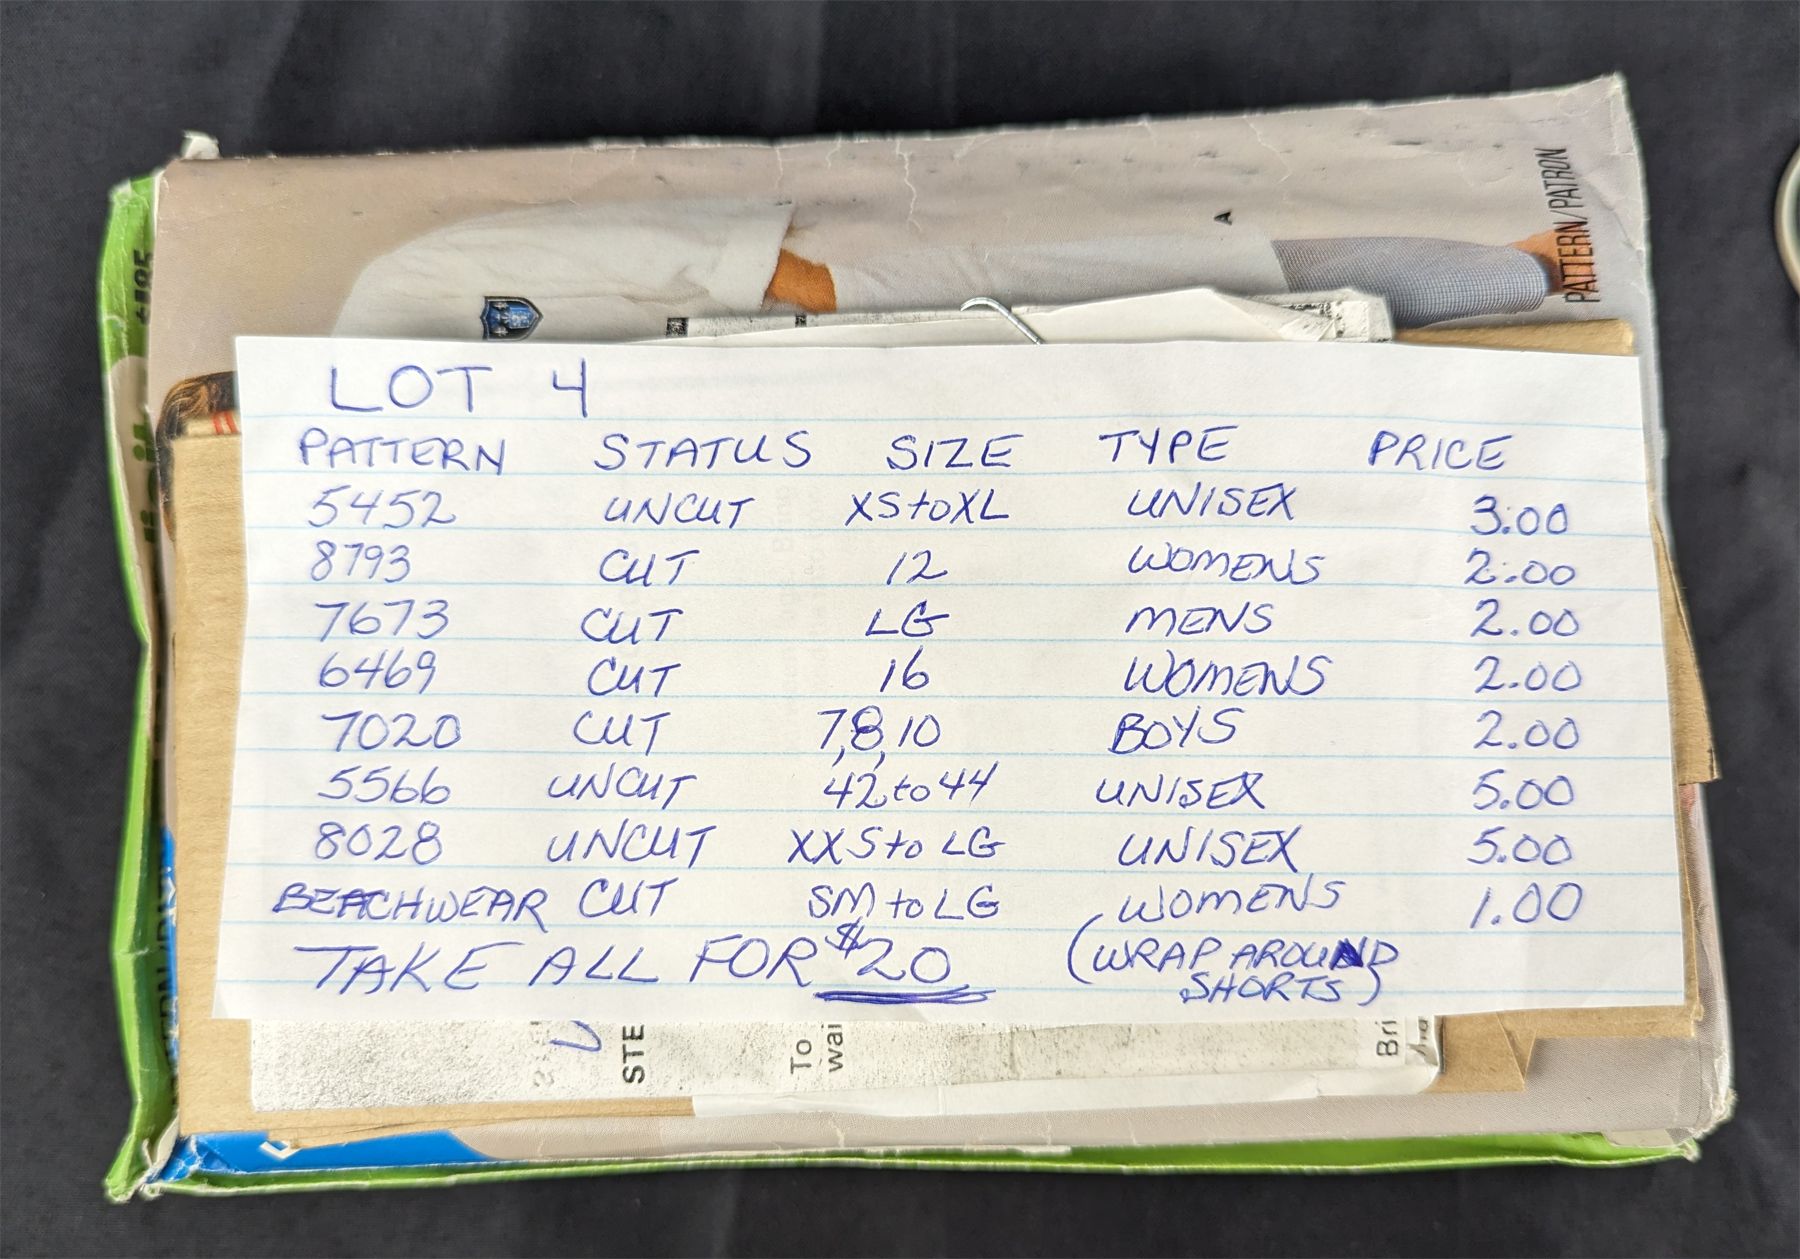 PATTERN/PATRON
A
LOT 4
PATTERN STATUS SIZE TYPE PRICE
5452 UNCUT XS to XL UNISEX 3.00
8793 CUT 12 WOMENS 2.00
7673 CUT LG MENS 2.00
6469 CUT 16 WOMENS 2.00
7020 CUT 7,8,10 BOYS 2.00
5566 UNCUT 42 to 44 UNISEX 5.00
8028 UNCUT XXS to LG UNISEX 5.00
BEACHWEAR CUT SM to LG WOMENS 1.00
TAKE ALL FOR $20 (WRAP AROUND
SHORTS)
STE
To
wai
Bri